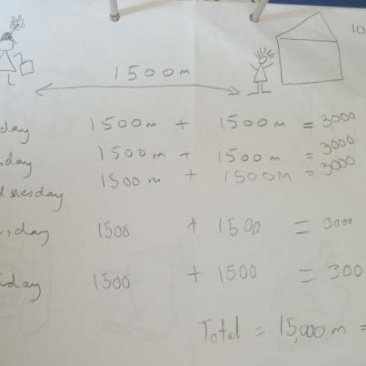 10
1500m
day 1500m + 1500m = 3,000
day 1500m + 1500m = 3000
nesday 1500m + 1500m = 3000
sday 1500 + 1500 = 3000
day 1500 + 1500 = 300
Total = 15,000m =